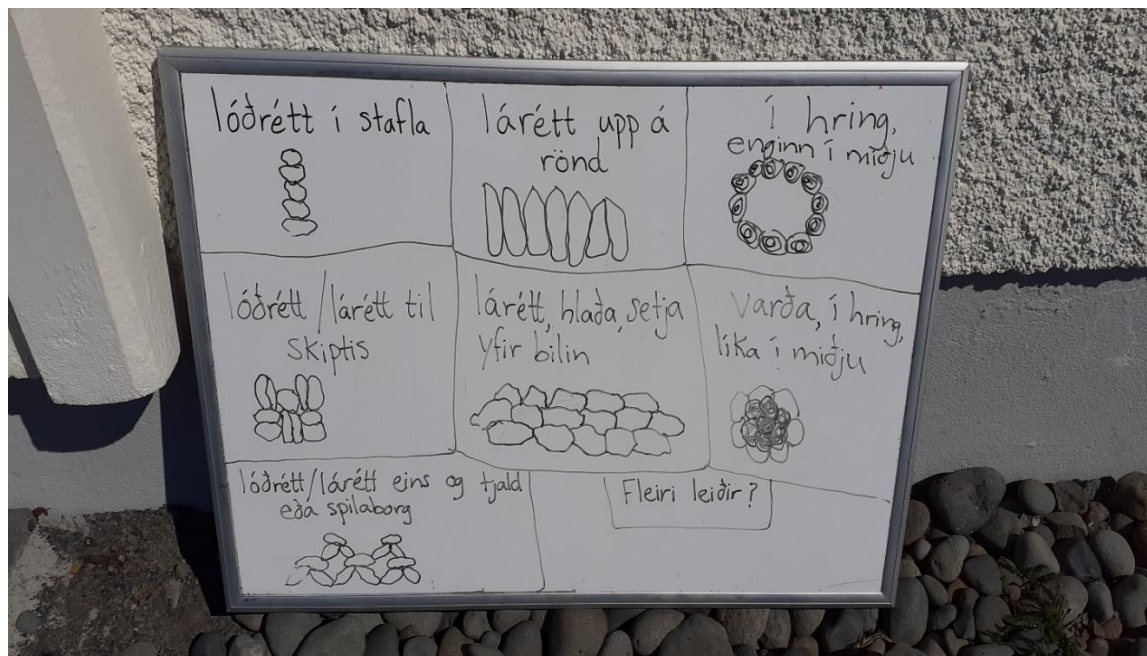 lóðrétt í stafla
lárétt upp á
rönd
í hring,
enginn í miðju
lóðrétt/lárétt til
skiptis
lárétt, hlaða, setja
yfir bilin
Varða, í hring,
líka í miðju
lóðrétt/lárétt eins og tjald
eða spilaborg
Fleiri leiðir?